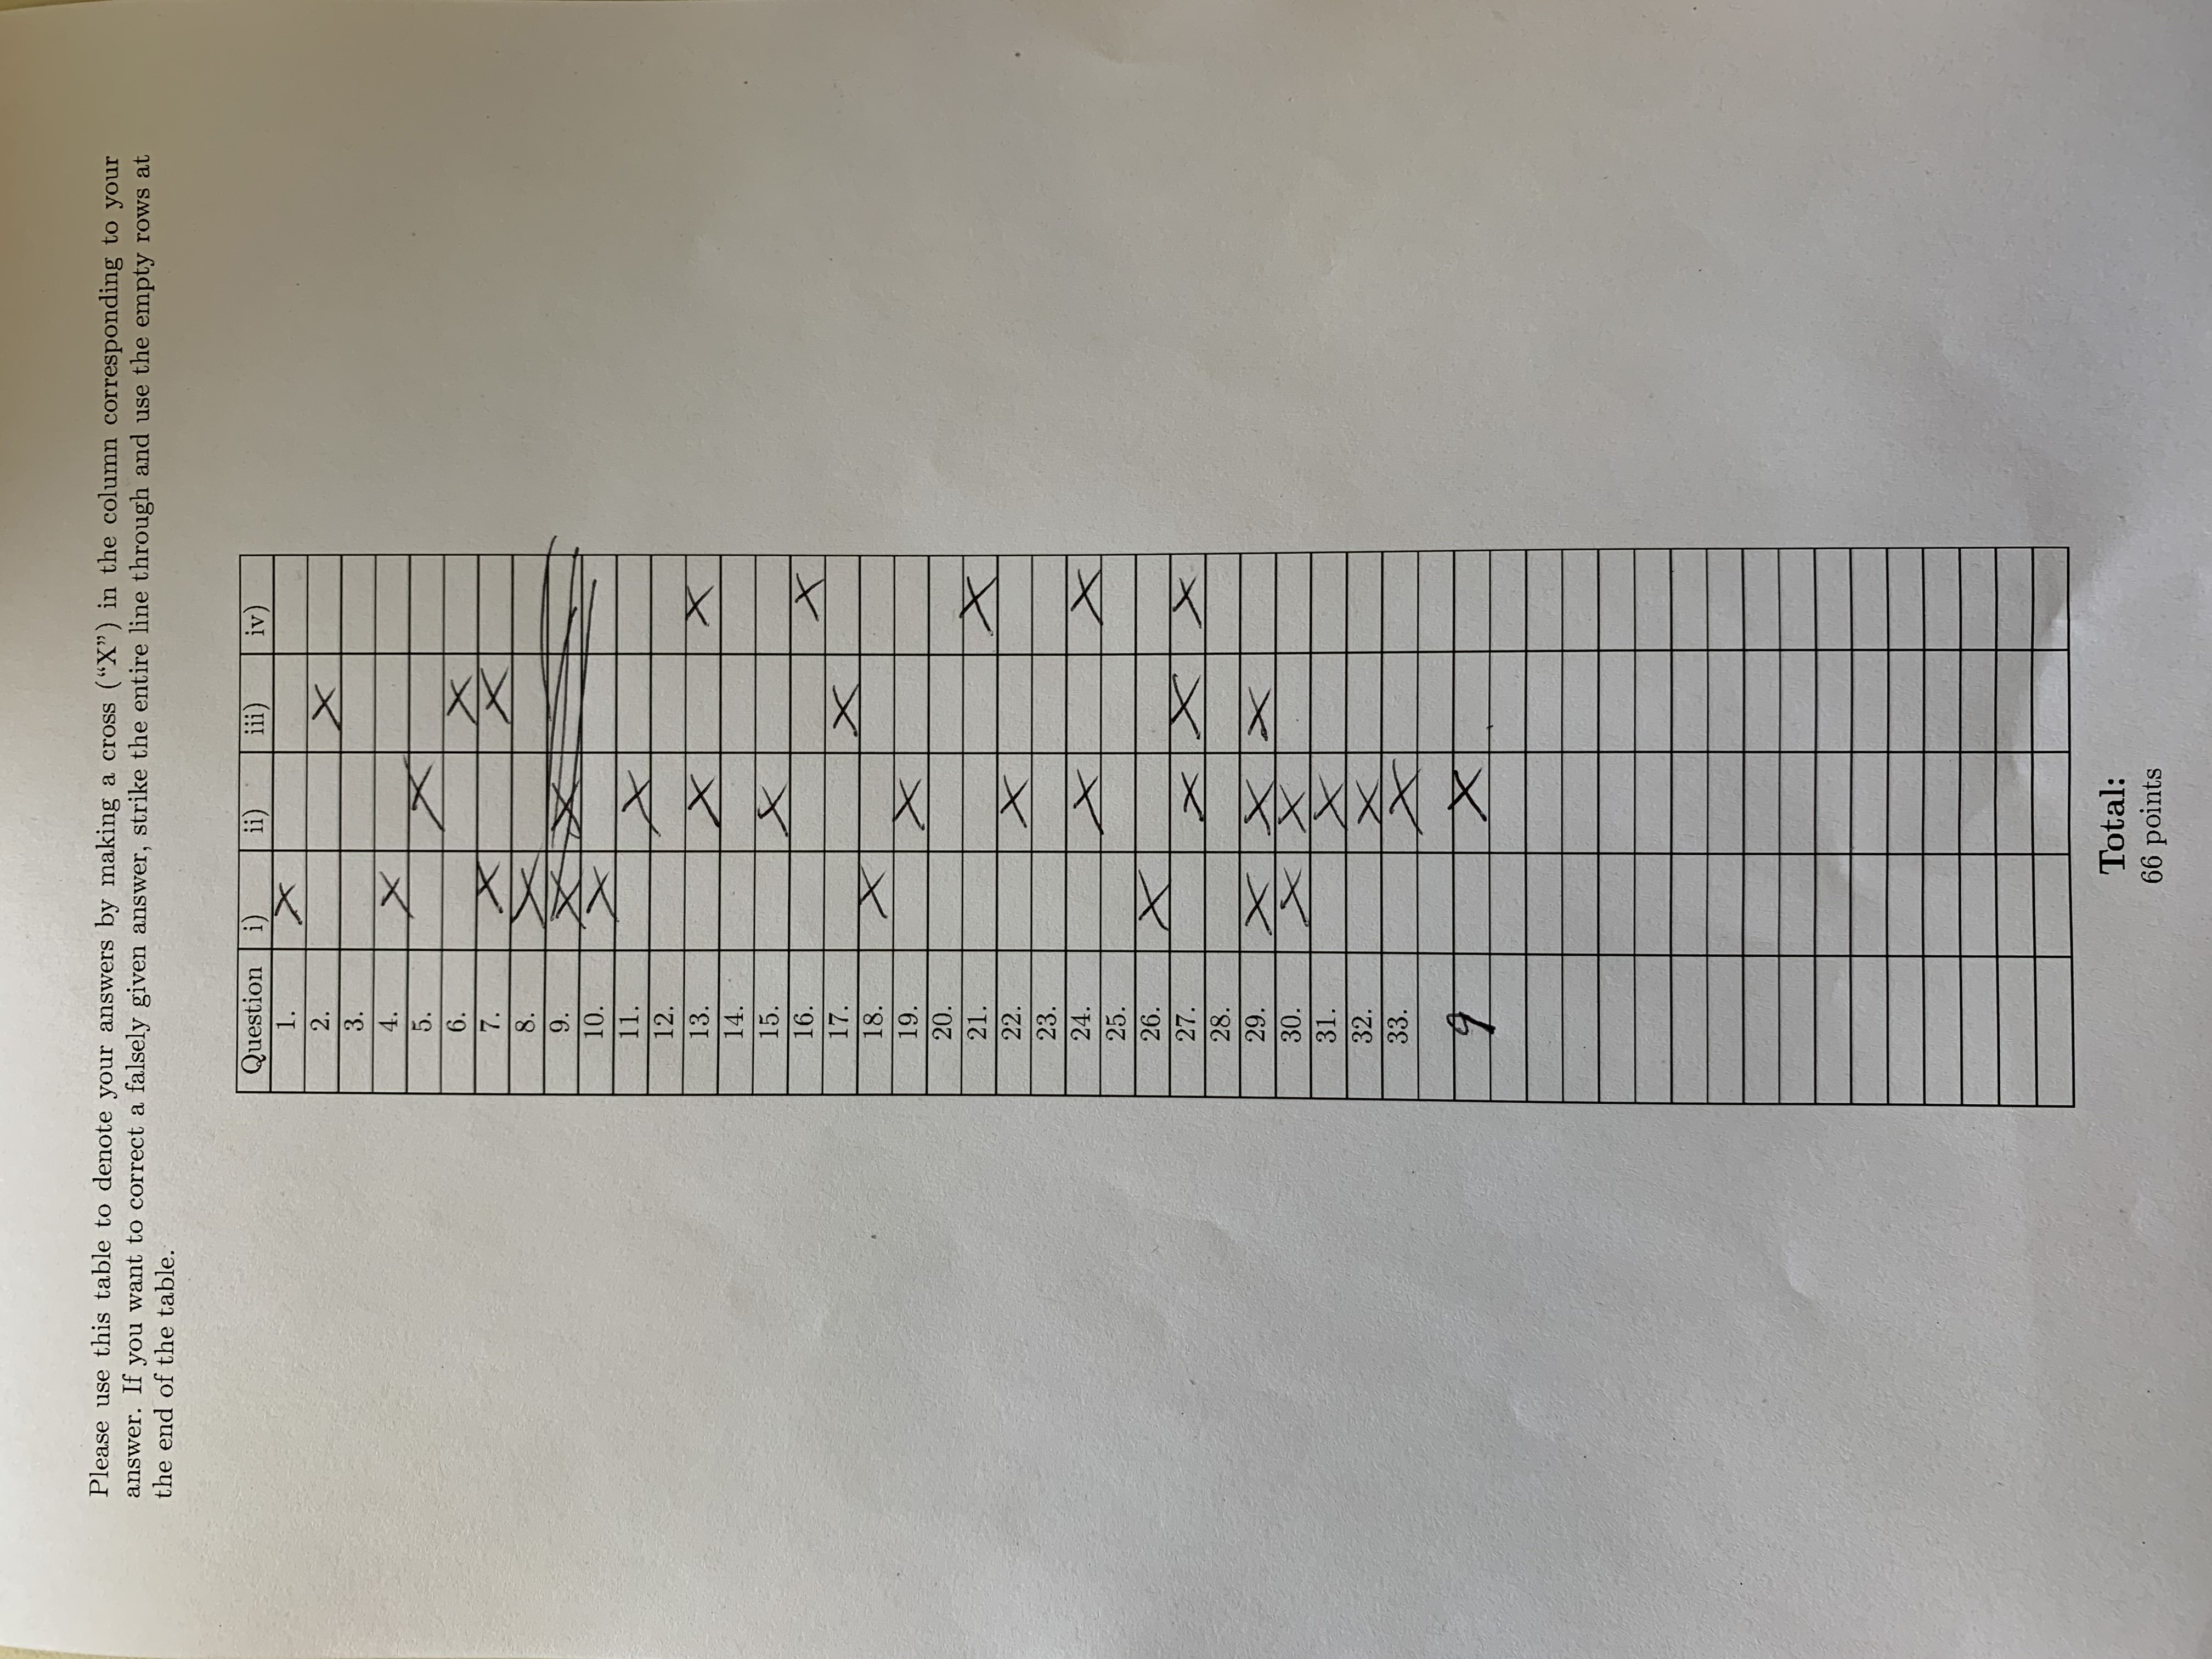 Please use this table to denote your answers by making a cross (“X”) in the column corresponding to your
answer. If you want to correct a falsely given answer, strike the entire line through and use the empty rows at
the end of the table.
Question i) ii) iii) iv)
1. X
2. X
3.
4. X
5. X
6. X
7. X X
8. X
9. X X
10. X
11. X
12.
13. X X
14.
15. X
16. X
17. X
18. X
19. X
20.
21. X
22. X
23.
24. X X
25.
26. X
27. X X X
28.
29. X X X
30. X X
31. X
32. X
33. X
9 X
Total:
66 points